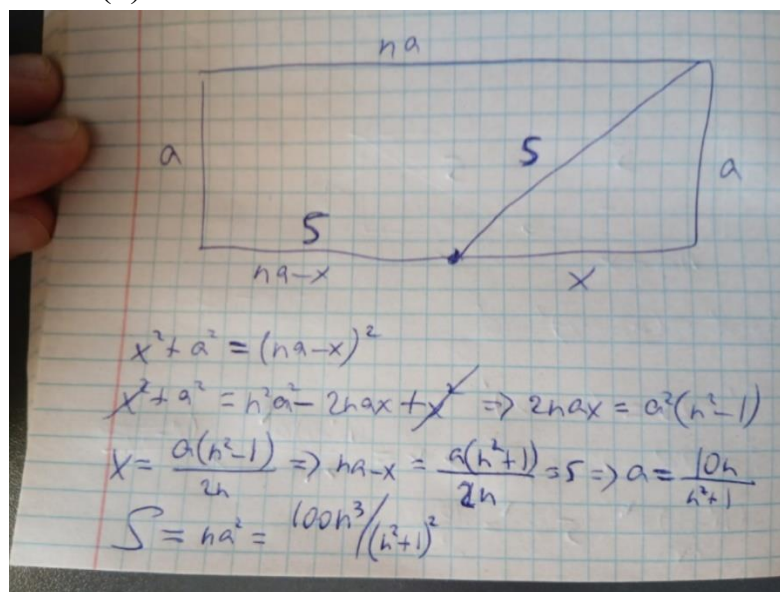 na
a
5
a
5
na-x
x
x²+a² = (na-x)²
x²+a² = n²a²-2nax+x² => 2nax = a²(n²-1)
x = a(n²-1)/2n => na-x = a(n²+1)/2n = 5 => a = 10n/n²+1
S = na² = 100n³/(n²+1)²